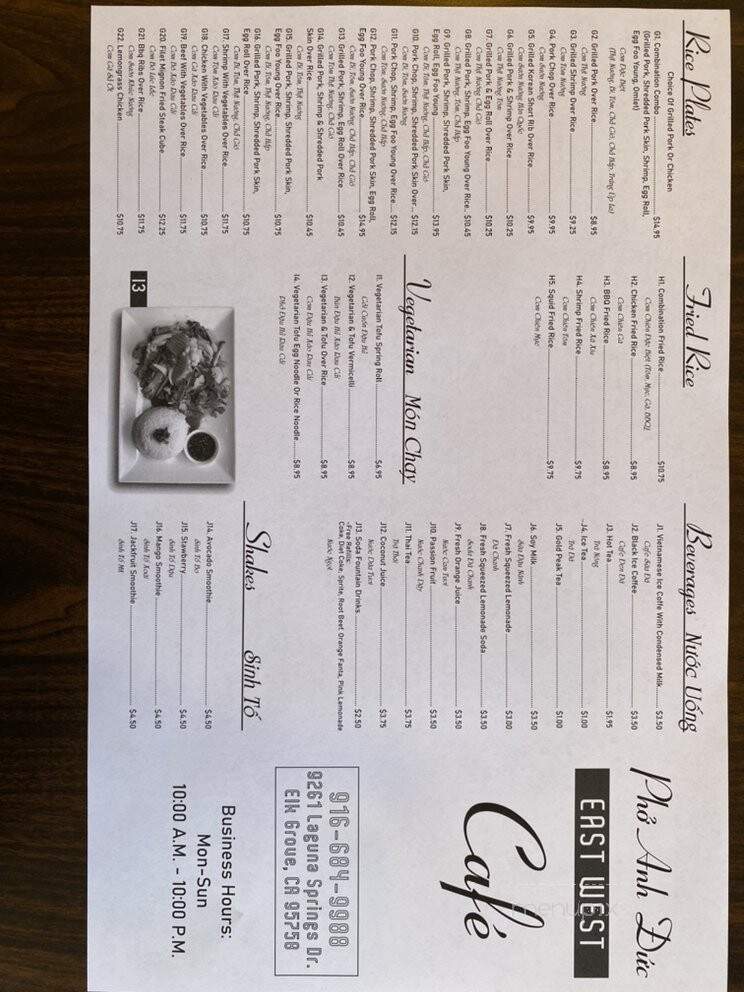 Rice Plates
Choice Of Grilled Pork Or Chicken
G1. Combination Combo .... $14.95
(Grilled Pork, Shredded Pork Skin, Shrimp, Egg Roll,
Egg Foo Young, Omlet)
Cơm Đặc Biệt
(Thịt Nướng, Bì, Tôm, Chả Giò, Chả Hấp, Trứng Ốp La)
G2. Grilled Pork Over Rice .... $8.95
Cơm Thịt Nướng
G3. Grilled Shrimp Over Rice .... $9.25
Cơm Tôm Nướng
G4. Pork Chop Over Rice .... $9.95
Cơm Sườn Nướng
G5. Grilled Korean Short Rib Over Rice .... $9.95
Cơm Sườn Nướng Đại Hàn Quốc
G6. Grilled Pork & Shrimp Over Rice .... $10.25
Cơm Thịt Nướng Tôm
G7. Grilled Pork & Egg Roll Over Rice .... $10.25
Cơm Thịt Nướng Chả Giò
G8. Grilled Pork, Shrimp, Egg Foo Young Over Rice .. $10.45
Cơm Thịt Nướng, Tôm, Chả Hấp
G9. Grilled Pork, Shrimp, Shredded Pork Skin,
Egg Roll, Egg Foo .... $13.95
Cơm Bì, Tôm, Thịt Nướng, Chả Hấp, Chả Giò
G10. Pork Chop, Shrimp, Shredded Pork Skin Over .... $12.15
Cơm Bì, Tôm, Sườn Nướng
G11. Pork Chop, Shrimp, Egg Foo Young Over Rice .... $12.15
Cơm Tôm, Sườn Nướng, Chả Hấp
G12. Pork Chop, Shrimp, Shredded Pork Skin, Egg Roll,
Egg Foo Young Over Rice .... $14.95
Cơm Bì, Tôm, Sườn Nướng, Chả Hấp, Chả Giò
G13. Grilled Pork, Shrimp, Egg Roll Over Rice .... $10.45
Cơm Tôm, Thịt Nướng, Chả Giò
G14. Grilled Pork, Shrimp & Shredded Pork
Skin Over Rice .... $10.45
Cơm Bì, Tôm, Thịt Nướng
G15. Grilled Pork, Shrimp, Shredded Pork Skin,
Egg Foo Young Over Rice .... $10.75
Cơm Bì, Tôm, Thịt Nướng, Chả Hấp
G16. Grilled Pork, Shrimp, Shredded Pork Skin,
Egg Roll Over Rice .... $10.75
Cơm Bì, Tôm, Thịt Nướng, Chả Giò
G17. Shrimp With Vegetables Over Rice .... $11.75
Cơm Tôm Xào Dau Cãi
G18. Chicken With Vegetables Over Rice .... $10.75
Cơm Gà Xào Dau Cãi
G19. Beef With Vegetables Over Rice .... $11.75
Cơm Bò Xào Dau Cãi
G20. Filet Mignon Fried Steak Cube .... $12.25
Cơm Bò Lúc Lắc
G21. Bbq Ribs Over Rice .... $11.75
Cơm Sườn Khúc Nướng
G22. Lemongrass Chicken .... $10.75
Cơm Gà Sả Ớt
Fried Rice
H1. Combination Fried Rice .... $10.75
Cơm Chiên Đặc Biệt (Tôm, Mực, Gà, BBQ)
H2. Chicken Fried Rice .... $8.95
Cơm Chiên Gà
H3. BBQ Fried Rice .... $8.95
Cơm Chiên Xá Xíu
H4. Shrimp Fried Rice .... $9.75
Cơm Chiên Tôm
H5. Squid Fried Rice .... $9.75
Cơm Chiên Mực
Vegetarian Món Chay
I1. Vegetarian Tofu Spring Roll .... $6.95
Gỏi Cuốn Đậu Hũ
I2. Vegetarian & Tofu Vermicelli .... $8.95
Bún Đậu Hũ Xào Dau Cãi
I3. Vegetarian & Tofu Over Rice .... $8.95
Cơm Đậu Hũ Xào Dau Cãi
I4. Vegetarian Tofu Egg Noodle Or Rice Noodle .... $8.95
Phở Đậu Hũ Dau Cãi
I3
Beverages Nước Uống
J1. Vietnamese Ice Coffe With Condensed Milk .... $3.50
Cafe Sữa Đá
J2. Black Ice Coffee .... $3.50
Cafe Đen Đá
J3. Hot Tea .... $1.95
Trà Nóng
J4. Ice Tea .... $1.00
Trà Đá
J5. Gold Peak Tea .... $1.00
J6. Soy Milk .... $3.50
Sữa Đậu Nành
J7. Fresh Squeezed Lemonade .... $3.00
Đá Chanh
J8. Fresh Squeezed Lemonade Soda .... $3.50
Soda Đá Chanh
J9. Fresh Orange Juice .... $3.50
Nước Cam Tươi
J10. Passion Fruit .... $3.50
Nước Chanh Dây
J11. Thai Tea .... $3.75
Trà Thái
J12. Coconut Juice .... $3.75
Nước Dừa Tươi
J13. Soda Fountain Drinks .... $2.50
-Free Refills:
Coke, Diet Coke, Sprite, Root Beet, Orange Fanta, Pink Lemonade
Nước Ngọt
Shakes Sinh Tố
J14. Avocado Smoothie .... $4.50
Sinh Tố Bơ
J15. Stawberry .... $4.50
Sinh Tố Dâu
J16. Mango Smoothie .... $4.50
Sinh Tố Xoài
J17. Jackfruit Smoothie .... $4.50
Sinh Tố Mít
Phở Anh Đức
EAST WEST
Café
916-684-9988
9261 Laguna Springs Dr.
Elk Grove, CA 95758
Business Hours:
Mon-Sun
10:00 A.M. - 10:00 P.M.
menupix